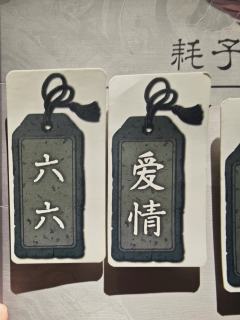 耗子
六六
爱情